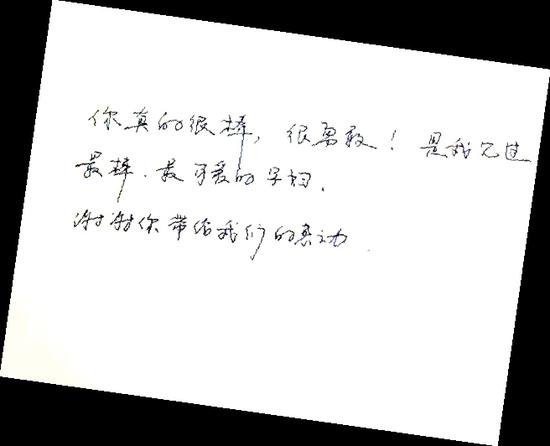 你真的很棒，很勇敢！是我见过
最棒、最可爱的孕妇。
谢谢你带给我们的感动。